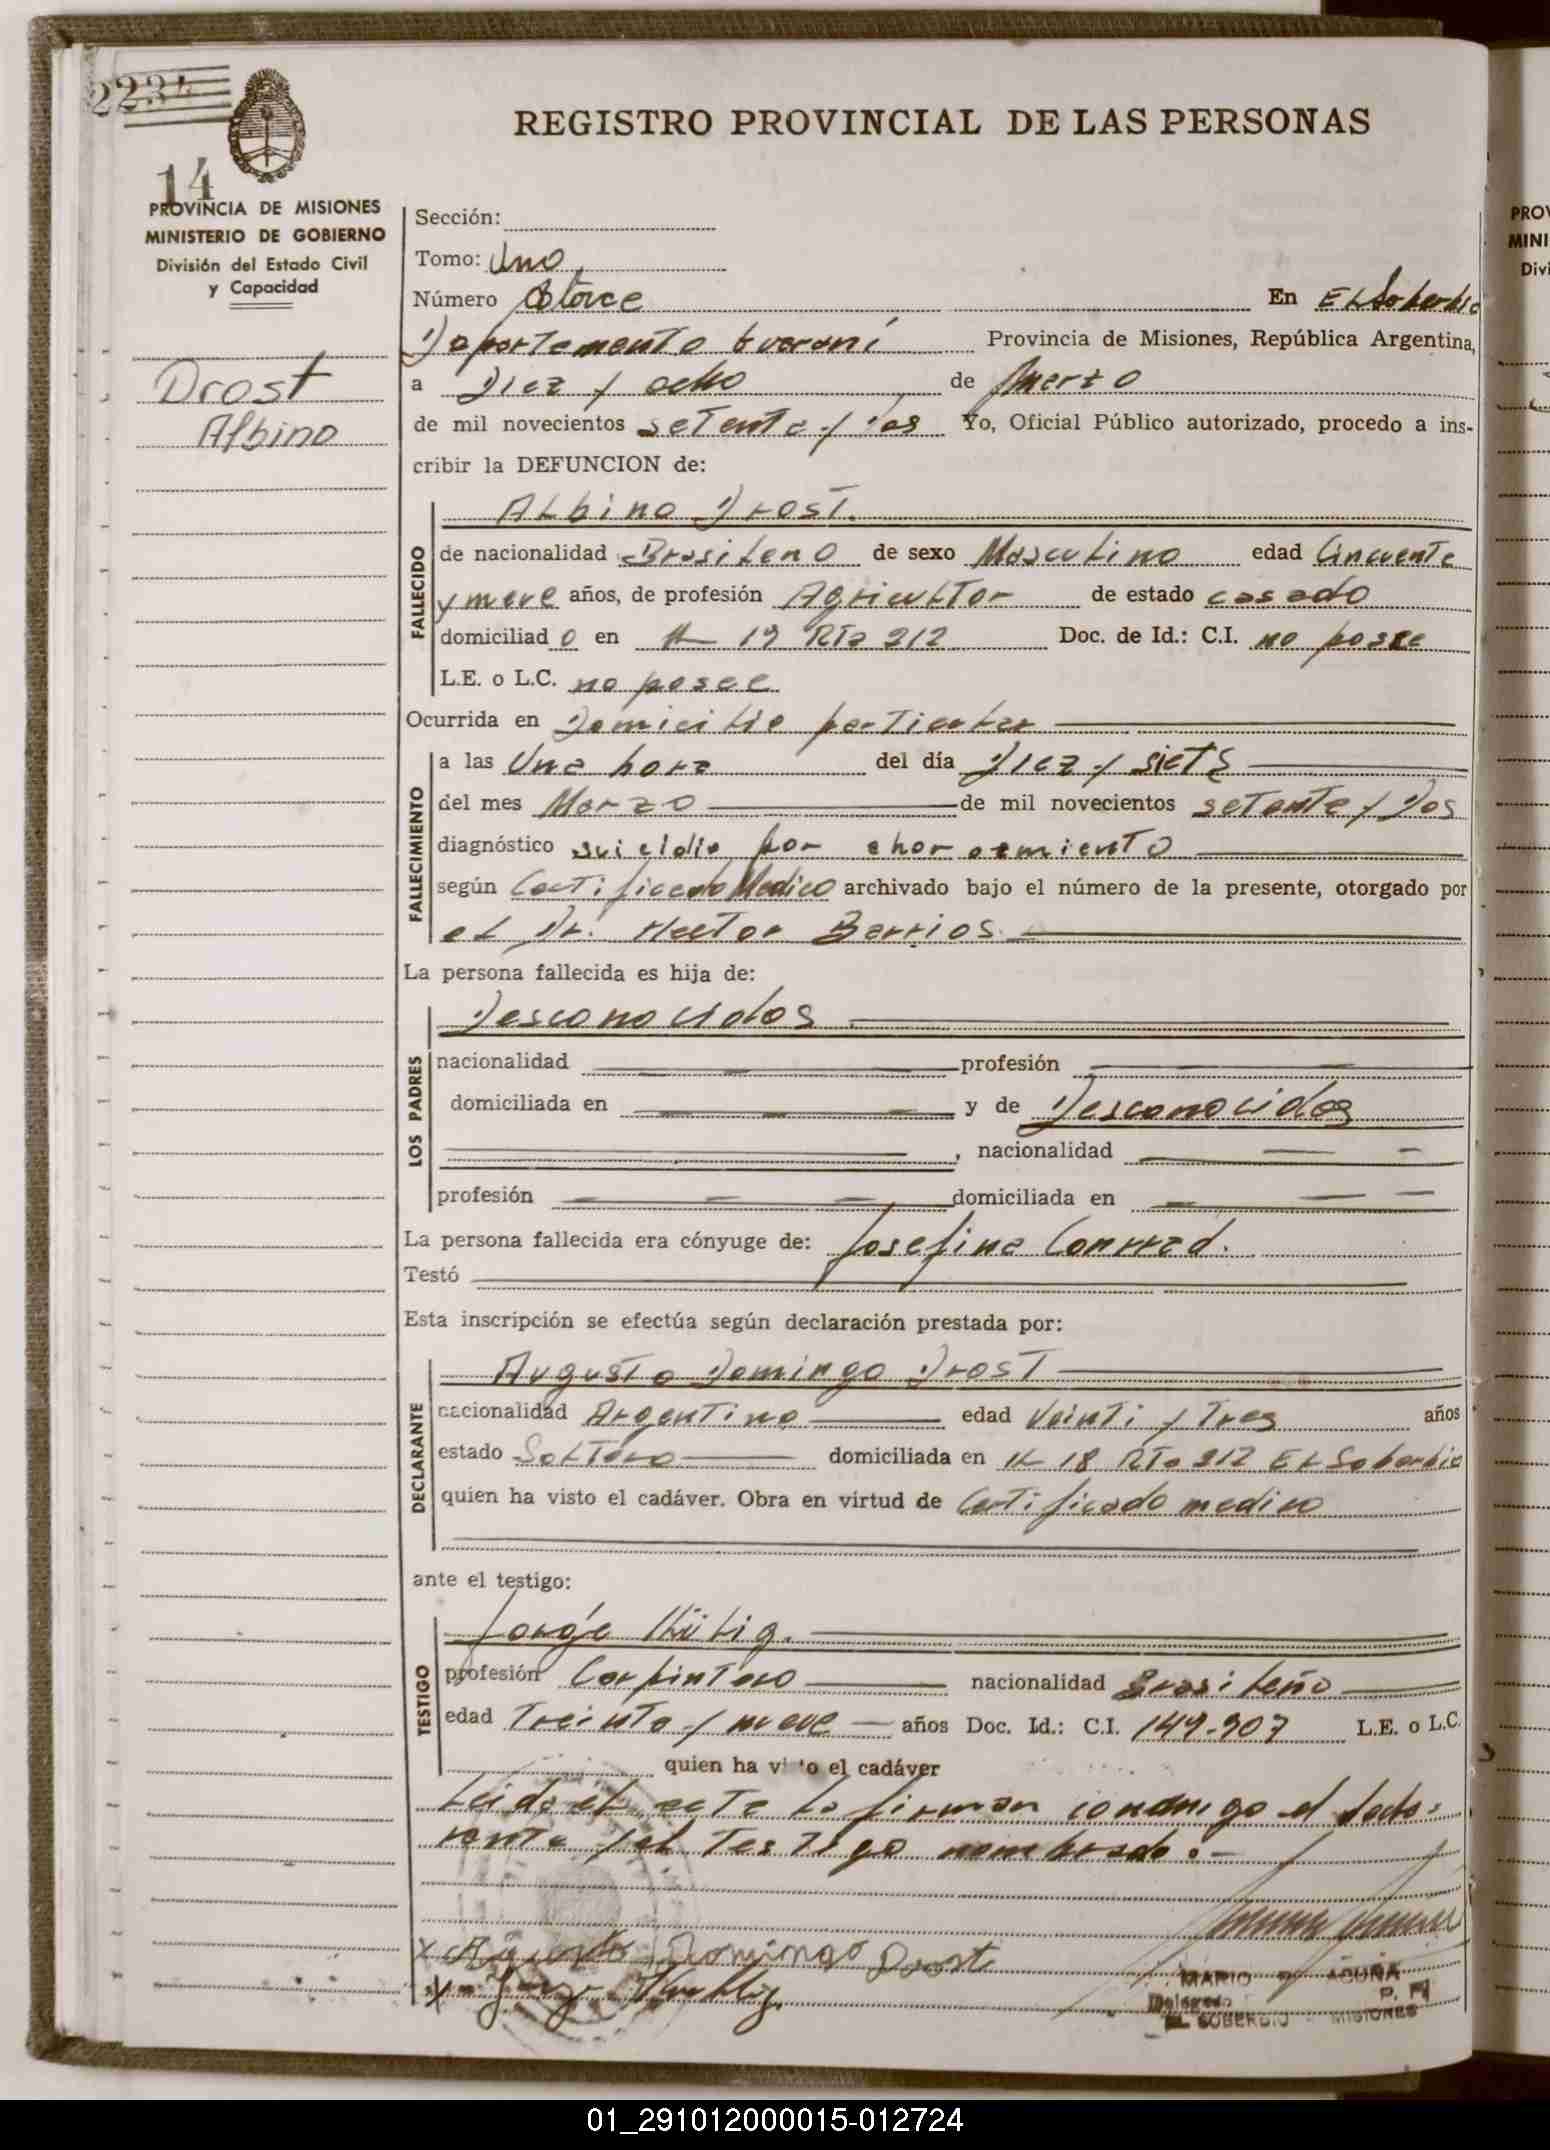 2234
14
REGISTRO PROVINCIAL DE LAS PERSONAS
PROVINCIA DE MISIONES
MINISTERIO DE GOBIERNO
División del Estado Civil
y Capacidad
Drost
Albino
Sección:
Tomo: Uno
Número Catorce En El Soberbio
Departamento Guaraní Provincia de Misiones, República Argentina,
a Diez y ocho de Marzo
de mil novecientos setenta y Dos Yo, Oficial Público autorizado, procedo a ins-
cribir la DEFUNCION de:
FALLECIDO
Albino Drost.
de nacionalidad Brasileno de sexo Masculino edad Cincuenta
y nueve años, de profesión Agricultor de estado casado
domiciliad o en K 19 Rta 212 Doc. de Id.: C.I. no posee
L.E. o L.C. no posee
Ocurrida en Domicilio particular
FALLECIMIENTO
a las Una hora del día Diez y siete
del mes Marzo de mil novecientos setenta y Dos
diagnóstico suicidio por ahorcamiento
según Certificado Medico archivado bajo el número de la presente, otorgado por
el Dr. Hector Barrios
La persona fallecida es hija de:
LOS PADRES
Desconocidos
nacionalidad profesión
domiciliada en y de Desconocidos
, nacionalidad
profesión domiciliada en
La persona fallecida era cónyuge de: Josefina Conrrad.
Testó
Esta inscripción se efectúa según declaración prestada por:
DECLARANTE
Augusto Domingo Drost
nacionalidad Argentino edad Veinti y Tres años
estado Soltero domiciliada en K 18 RTa 212 El Soberbio
quien ha visto el cadáver. Obra en virtud de Certificado medico
ante el testigo:
TESTIGO
Jorge
profesión Carpintero nacionalidad Brasileño
edad Treinta y nueve años Doc. Id.: C.I. 149-907 L.E. o L.C.
quien ha visto el cadáver
Leida el acta la firman conmigo el decla-
rante y el Testigo nombrado.-
x Augusto Domingo Drost
x
MARIO ACUÑA
Delegado
EL SOBERBIO MISIONES
PROV
MINI
Divi
01_291012000015-012724